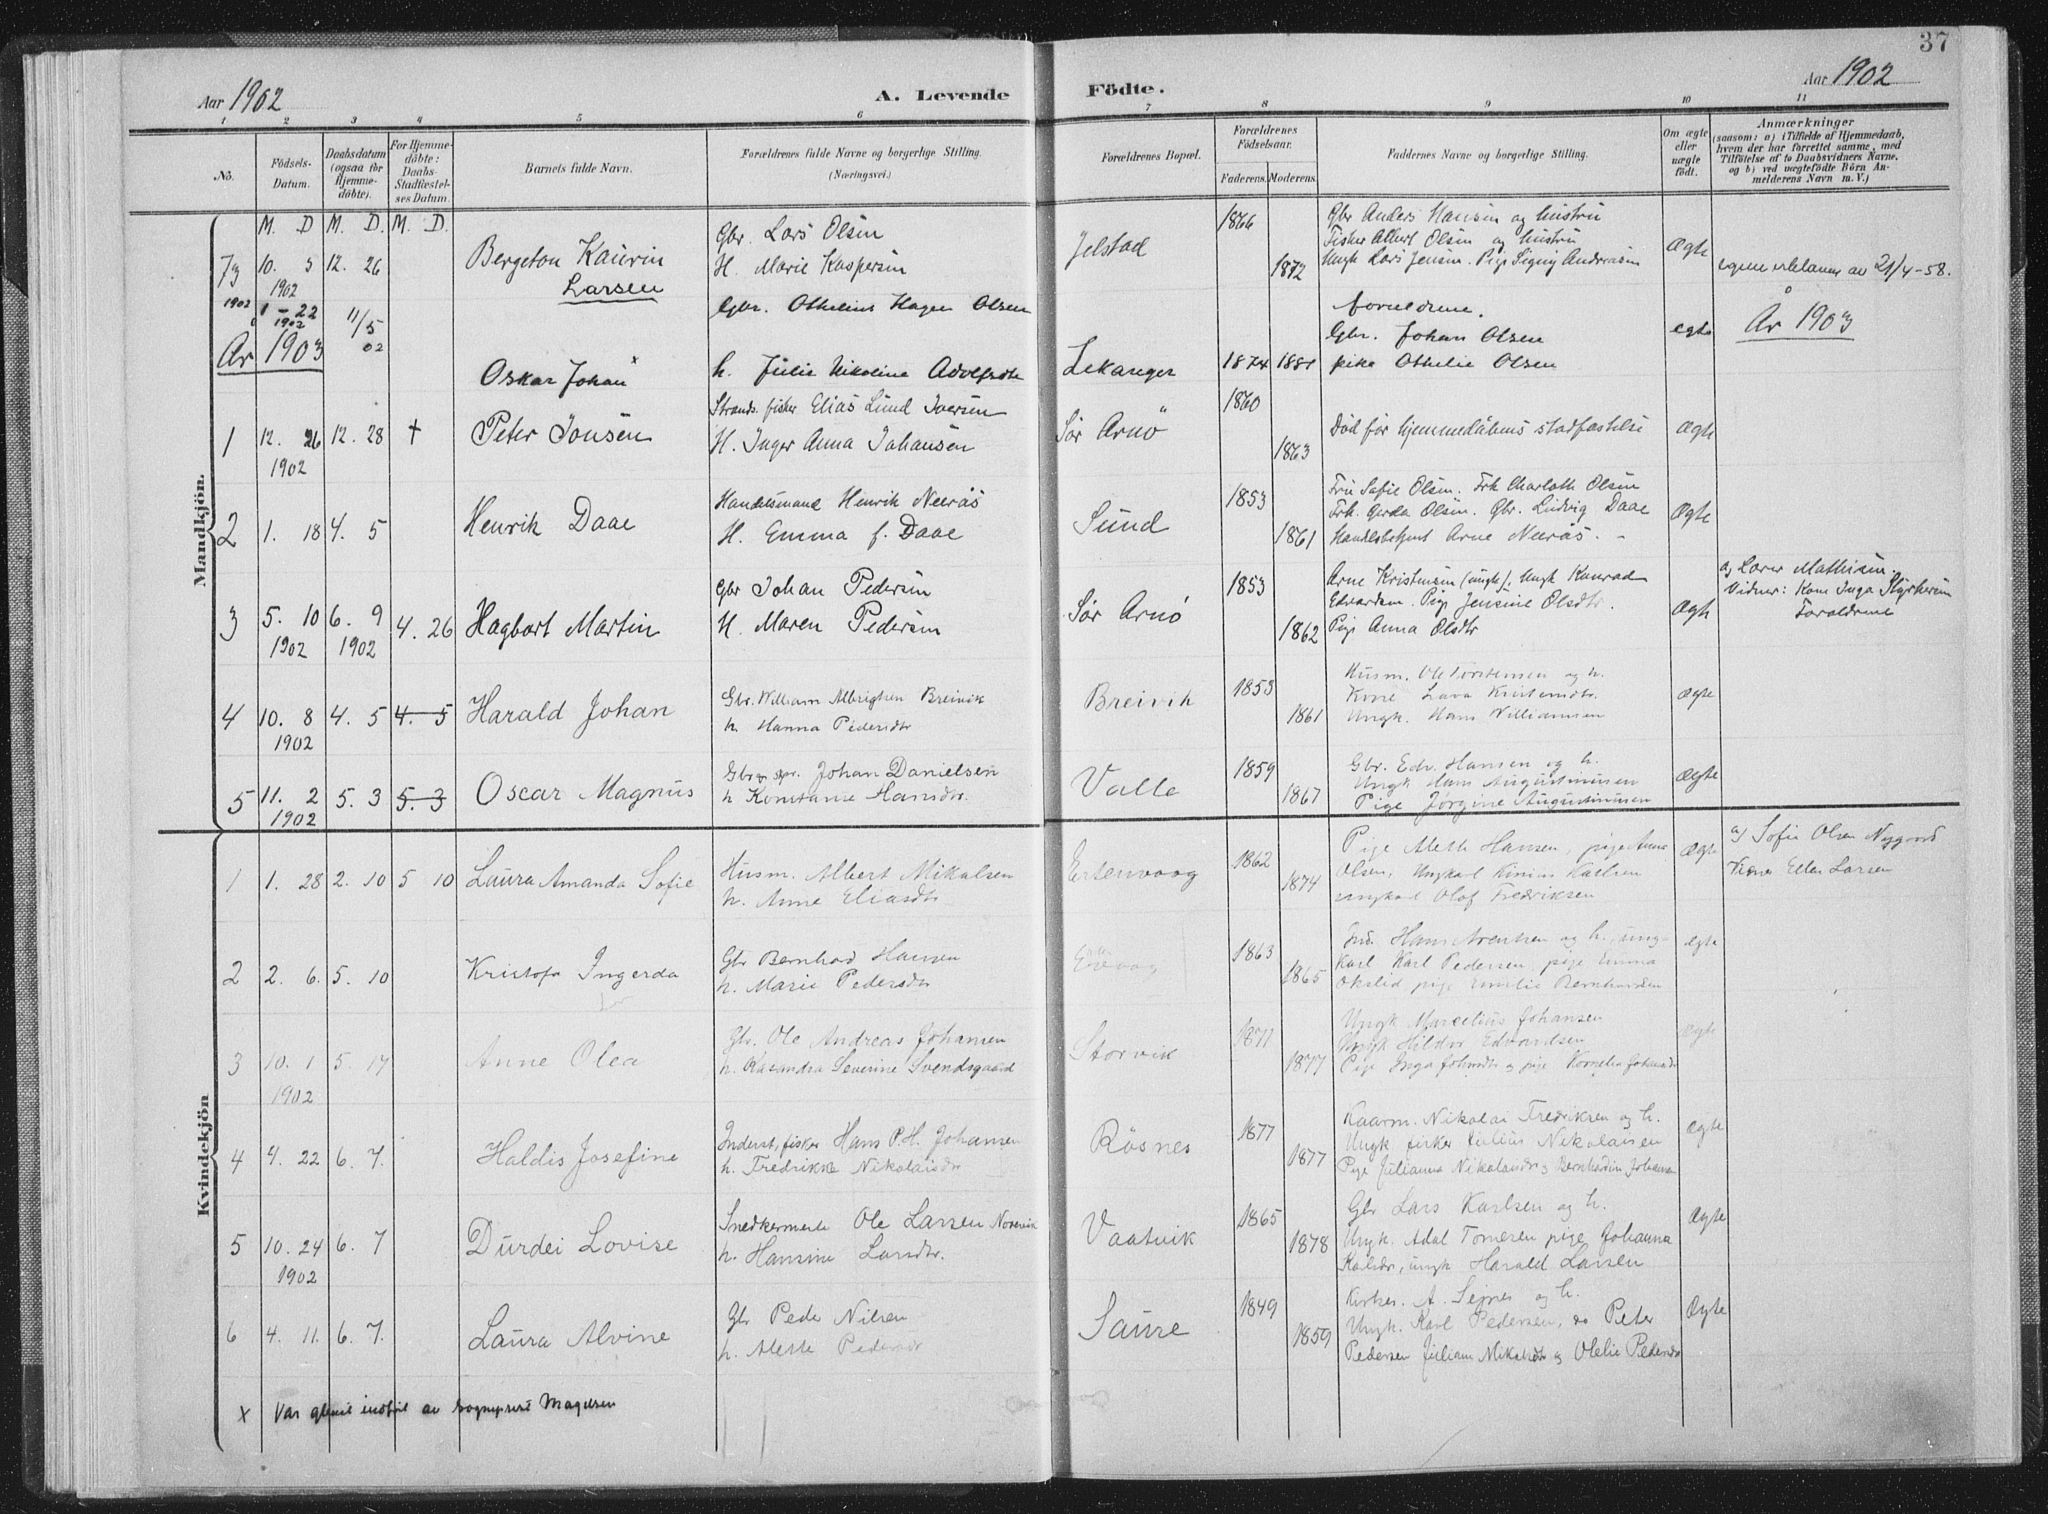 37
Aar 1902
A. Levende Födte.
Aar 1902
1 2 3 4 5 6 7 8 9 10 11
No.
Födsels-Datum.
Daabsdatum (ogsaa for Hjemmedöbte).
For Hjemmedöbte: Daabs-Stadfæstelses Datum.
Barnets fulde Navn.
Forældrenes fulde Navne og borgerlige Stilling. (Næringsvei.)
Forældrenes Bopæl.
Forældrenes Fødselsaar.
Faderens. Moderens.
Faddernes Navne og borgerlige Stilling.
Om ægte eller uægte födt.
Anmærkninger
(saasom: a) i Tilfælde af Hjemmedaab, hvem der har forrettet samme, med Tilföielse af to Daabsvidners Navne. og b) ved uægtefödte Börn Anmelderens Navn m. V.)
M. D M. D. M. D.
Mandkjön.
73 10. 5 12. 26 Bergeton Kaurin Gbr. Lars Olsen Jelstad 1866 Gbr Anders Hansen og hustru
1902 1902 Larsen H. Marie Kaspersen 1872 Fisker Albert Olsen og hustru Ægte
Ungk Lars Jensen. Pige Signy Andreasen av 21/4-58.
1-22 11/5 Gbr. Othelius Hagen Olsen foreldrene. År 1903
1902 02 Gbr. Johan Olsen egte
År 1903 Oskar Johan x h. Julie Nikoline Adolfsdtr Lekanger 1874 1881 pike Othelie Olsen
1 12. 26 12. 28 + Peter Jonsen Strands. fisker Elias Lund Iversen Sør Arnö 1860 Død før hjemmedåbens stadfæstelse Ægte
1902 H. Inger Anna Johansen 1863
2 1. 18 4. 5 Henrik Daae Handelsmand Henrik Neerås Sund 1853 Fru Sofie Olsen. Frk Charlotte Olsen
H. Emma f. Daae 1861 Frk. Gerda Olsen. Gbr. Ludvig Daae Ægte
Handelsbetjent Arne Neerås. -
3 5. 10 6. 9 4. 26 Hagbart Martin Gbr Johan Pedersen Sør Arnø 1853 Arne Kristensen (ungk). Ungk Konrad a) Lærer Mathisen.
1902 1902 H. Maren Pedersen 1862 Edvardsen. Pige Jensine Olsdtr. Ægte Vidner: Kone Inga
Pige Anna Olsdtr Forældrene
4 10. 8 4. 5 4. 5 Harald Johan Gbr. William Albrigtsen Breivik Breivik 1853 Husm. Ole Torstensen og h.
1902 h. Hanna Pedersdtr 1861 Kone Lava Kristensdtr. Ægte
Ungk. Hans Williamsen
5 11. 2 5. 3 5. 3 Oscar Magnus Gbr og spr. Johan Danielsen Valle 1859 Gbr. Edv. Hansen og h. Ægte
1902 h Konstanse Hansdtr. 1867 Ungk Hans Augustinusen
Pige Jørgine Augustinusen
Kvindekjön
1 1. 28 2. 10 5 10 Laura Amanda Sofie Husm. Albert Mikalsen Ertenvaag 1862 Pige Alette Hansen, pige Anna Ægte a) Sofie Olsen Nygaard
h. Anne Eliasdtr 1874 Olsen, Ungkarl Karlsen Ellen Larsen
ungkarl Olaf Fredriksen
2 2. 6. 5. 10 Kristofa Ingerda Gbr Bernhard Hansen 1863 Hans Arentsen og h., ung- egte
h. Marie Pedersdtr 1865 karl Karl Pedersen, pige Emma
pige Emelie Bernhardsen
3 10. 1 5. 17 Anne Olea Gbr. Ole Andreas Johansen Storvik 1871 Ungk Marcelius Johansen Ægte
1902 h. Kasandra Severine Svendsgaard 1877 Ungk Hildor Edvardsen
Pige Inga Johansdtr og pige Kornelia Johansdtr
4 4. 22 6. 7. Haldis Josefine Inderst, fisker Hans P. H. Johansen Rösnes 1877 Kaarm. Nikolai Fredriksen og h. Ægte
h. Fredrikke Nikolaisdtr 1877 Ungk fisker Julius Nikolaisen
Pige Julianna Nikolaisdtr og Bernhardin Johansen
5 10. 24 6. 7 Durdei Lovise Snedkermester Ole Larsen Vaatvik 1865 Gbr Lars Karlsen og h. Ægte
1902 h. Hansine Larsdtr. 1878 Ungk. Adal Tomesen pige Johanna
Karlsdtr, ungk Harald Larsen
6 4. 11. 6. 7. Laura Alvine Gbr Peder Nilsen Saure 1849 Kirkes. A. Sejnes og h. Ægte
h. Alette Pedersdtr 1859 Ungk. Karl Pedersen, do Peter
Pedersen Mikalsdtr og Olelie Pedersdtr
x Var glemt indført av sogneprest Magelsen